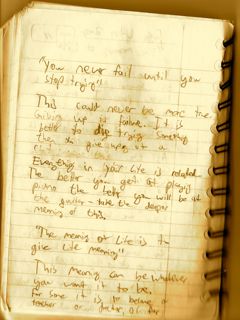 "You never fail until you
stop trying"
This could never be more true
Giving up is failure. It is
better to die trying something
than to give up at a
Everything in your life is related.
The better you get at playing
piano the better you will be at
the guitar - take the deeper
meaning of this.
"The meaning of life is to
give life meaning"
This meaning can be whatever
you want it to be.
for some it is being a
teacher or doctor, a